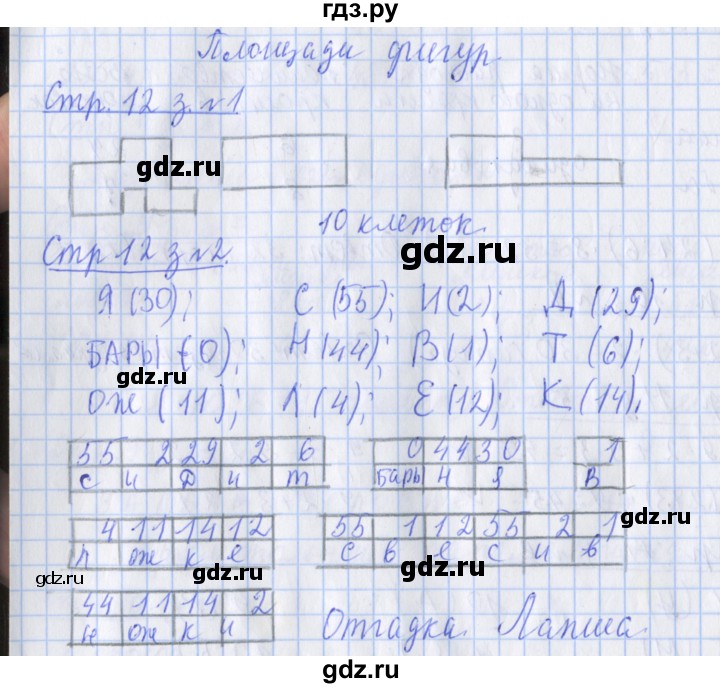 гдз.ру
Площади фигур
Стр. 12 з. №1.
gdz.ru
10 клеток.
gdz.ru
Стр 12 з №2.
Я (30); С (55); И(2); Д (29);
БАРЫ (0); Н (44); В(1); Т (6);
gdz.ru
ОЖ (11); Л (4); Е (12); К (14).
55 2 29 2 6 0 44 30 1
с и д и т бары н я в
4 11 14 12 55 1 12 55 2 1
gdz.ru
л ож к е с в е с и в
gdz.ru gdz.ru
44 11 14 2
н ож к и
Отгадка. Лапша.
gdz.ru
gdz.ru